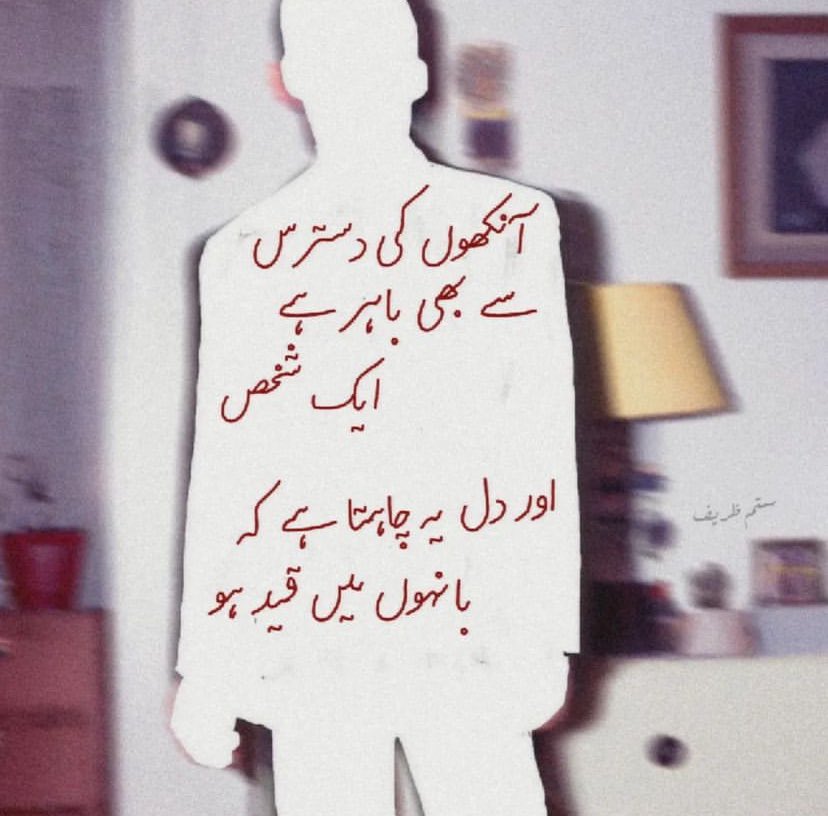 آنکھوں کی دسترس
سے بھی باہر ہے
ایک شخص
اور دل یہ چاہتا ہے کہ
بانہوں میں قید ہو
ستم ظریف